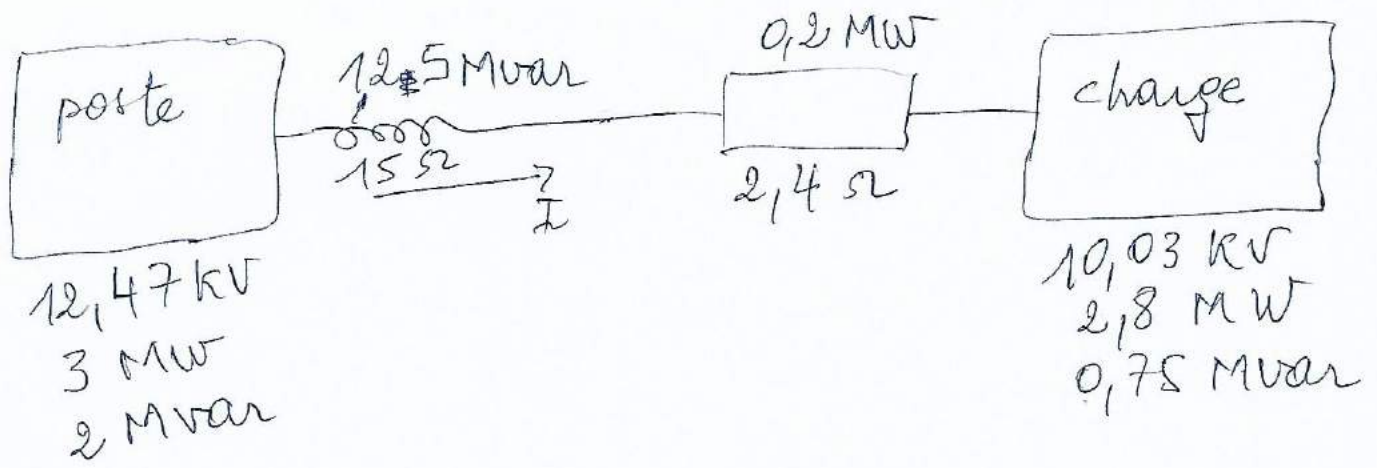 poste
12,5 Mvar
15 Ω
I
0,2 MW
2,4 Ω
charge
12,47 kV
3 MW
2 Mvar
10,03 kV
2,8 MW
0,75 Mvar